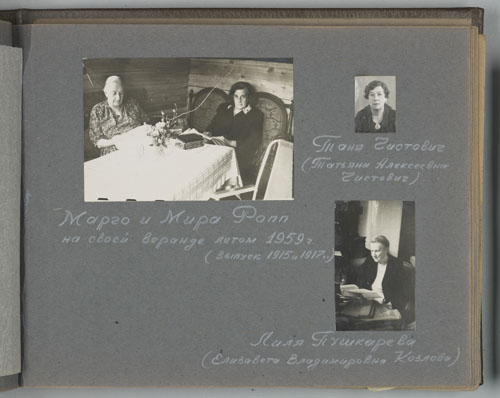 Марго и Мира Ропп
на своей веранде летом 1959 г
(выпуск 1915 и 1917 г.)
Таня Чистович
(Татьяна Алексеевна
Чистович)
Лиля Пушкарева
(Елизавета Владимировна Козлова)